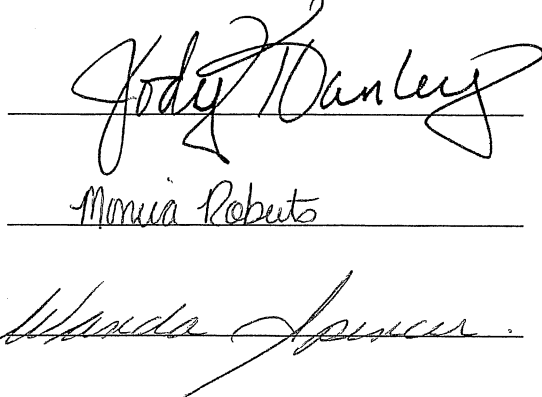 Jody Danley
Monica Roberts
Wanda Spencer.